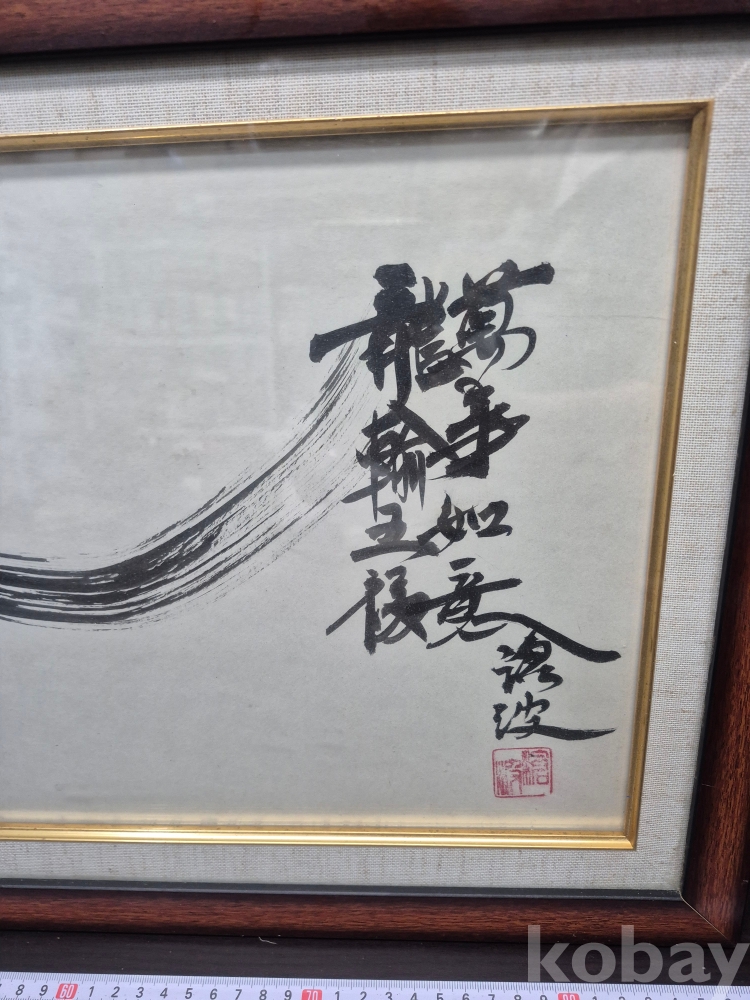 萬事如意
龍輪
波
kobay
8 9 60 1 2 3 4 5 6 7 8 9 70 1 2 3 4 5 6 7 8 9